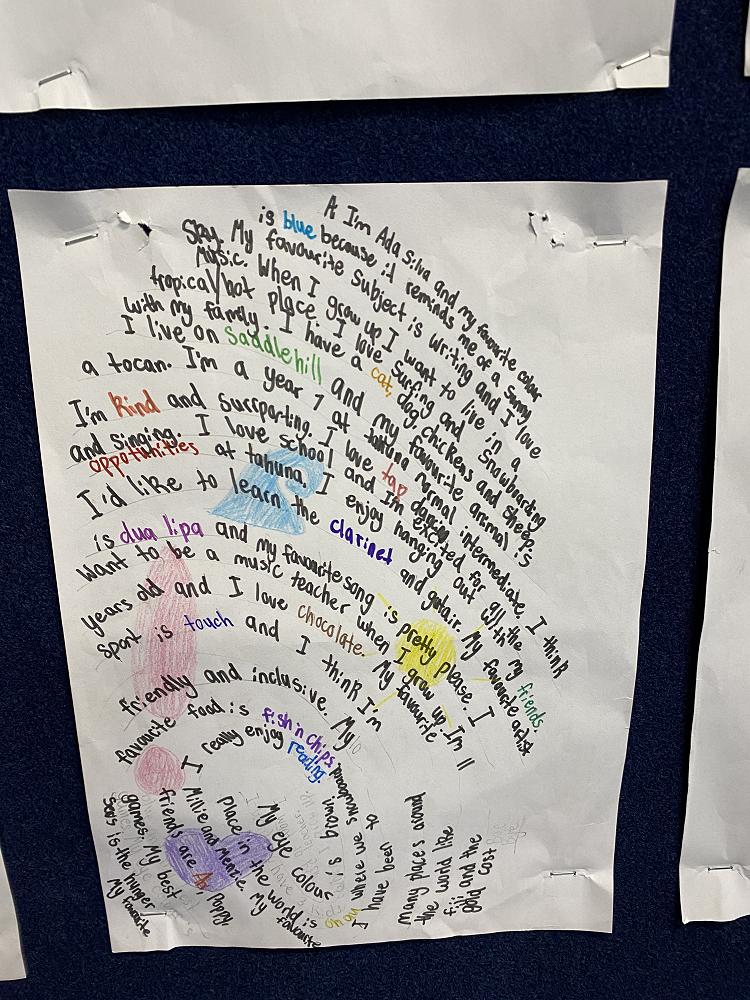 A I'm Ada silva and my favourite color
is blue because it reminds me of a sunny
Sky. My favourite subject is writing and I love
Music. When I grow up I want to live in a
tropical/hot place. I love surfing and snowboarding
with my family. I have a cat, dog, chickens and sheep.
I live on Saddlehill and my favourite animal is
a tocan. I'm a year 7 at tahuna normal intermediate. I think
I'm Kind and surrporting. I love tap dancing
and singing. I love school and I'm excited for all the
oppotunities at tahuna. I enjoy hanging out with my friends.
I'd like to learn the clarinet and gutair. My favourite artist
is dua lipa and my favourite song is pretty please. I
want to be a music teacher when I grow up. I'm 11
years old and I love chocolate. My favourite
sport is touch and I think I'm
friendly and inclusive. My
favourite food is fish n chips.
I really enjoy reading.
My favourite
seris is the hunger
games. My best
friends are Poppy,
Millie and Menzie. My favourite
place in the world is
ohau where we snowboard.
My eye colour is brown.
I have been to
many places around
the world like
fiji and the
gold cost